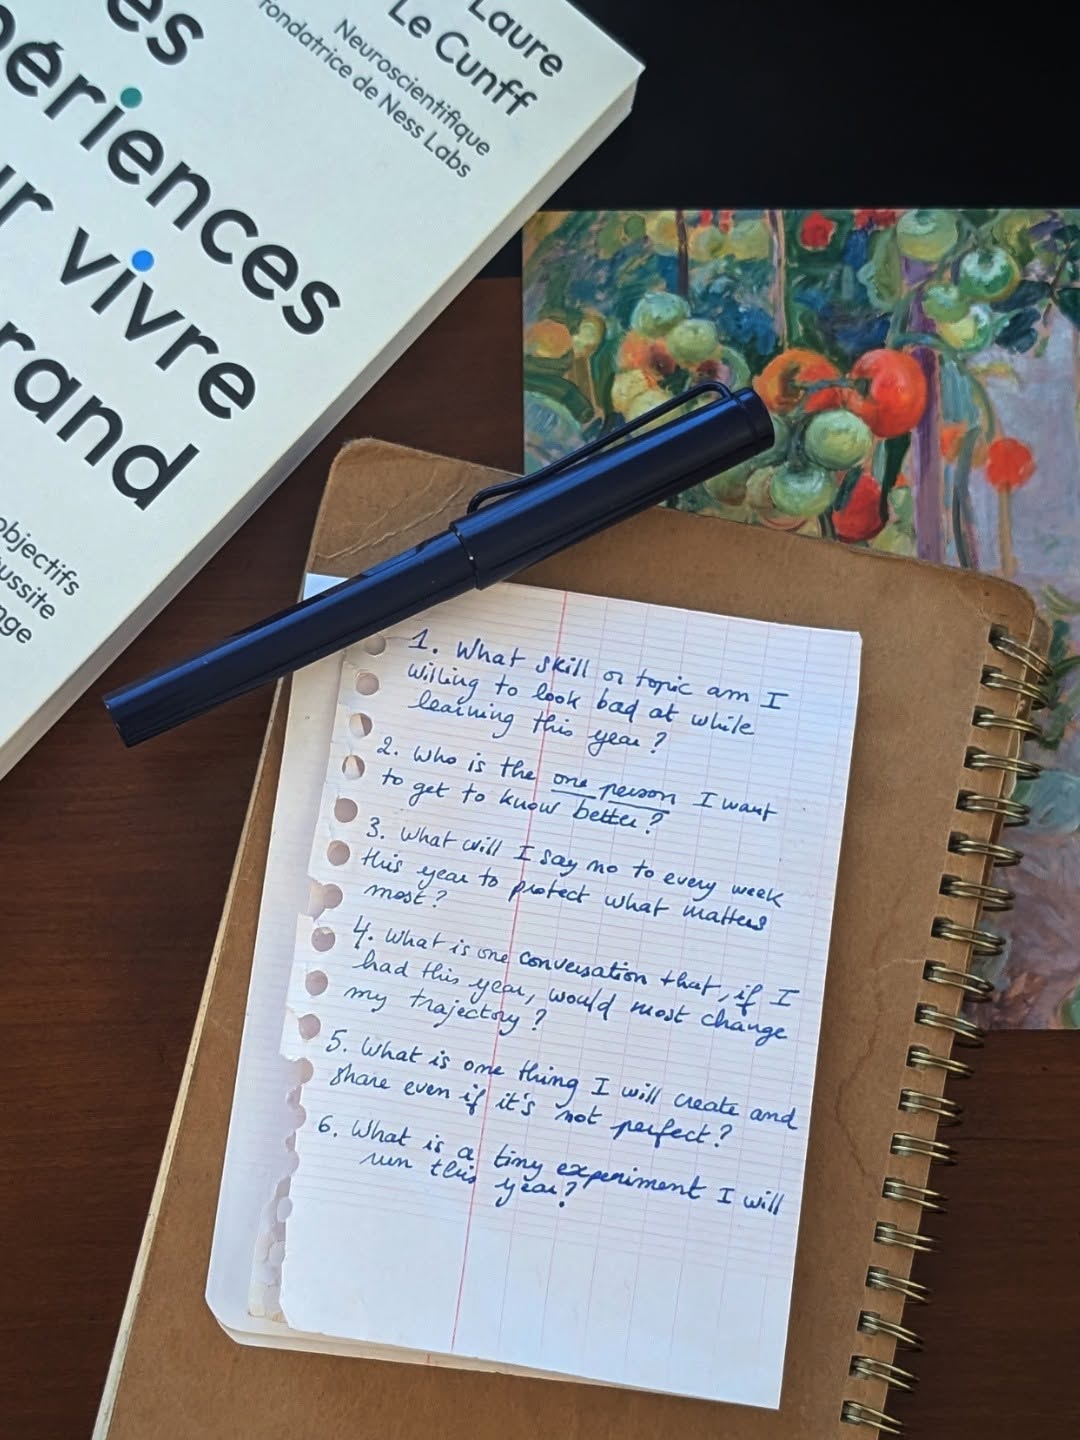 Laure
Le Cunff
Neuroscientifique
fondatrice de Ness Labs
vivre
objectifs
1. What skill or topic am I
willing to look bad at while
learning this year?
2. Who is the one person I want
to get to know better?
3. What will I say no to every week
this year to protect what matters
most?
4. What is one conversation that, if I
had this year, would most change
my trajectory?
5. What is one thing I will create and
share even if it's not perfect?
6. What is a tiny experiment I will
run this year?